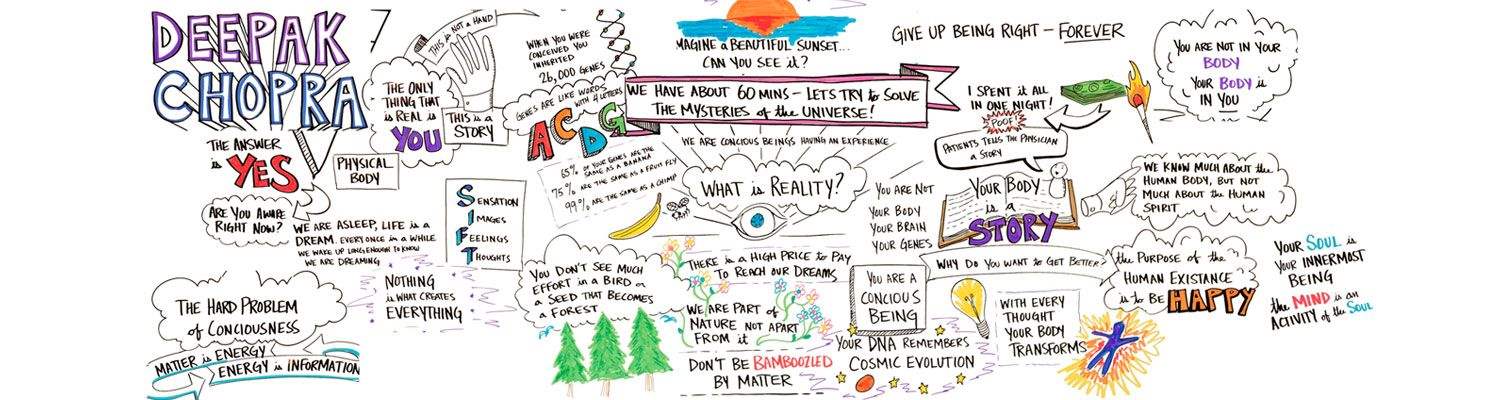 DEEPAK
CHOPRA
THE ANSWER
is YES
ARE YOU AWARE
RIGHT NOW?
PHYSICAL
BODY
WE ARE ASLEEP, LIFE is a
DREAM. EVERY ONCE in a WHILE
WE WAKE UP LONG ENOUGH to KNOW
WE ARE DREAMING
THE HARD PROBLEM
of CONCIOUSNESS
MATTER is ENERGY
ENERGY is INFORMATION
THIS is NOT a HAND
THE ONLY
THING THAT
is REAL is
YOU
THIS is a
STORY
WHEN YOU WERE
CONCEIVED YOU
INHERITED
26,000 GENES
GENES ARE LIKE WORDS
WITH 4 LETTERS
A C D G
65% OF YOUR GENES ARE THE
SAME AS a BANANA
75% ARE THE SAME AS a FRUIT FLY
99% ARE THE SAME as a CHIMP
SENSATION
IMAGES
FEELINGS
THOUGHTS
NOTHING
is WHAT CREATES
EVERYTHING
YOU DON'T SEE MUCH
EFFORT in a BIRD or
a SEED THAT BECOMES
a FOREST
MAGINE a BEAUTIFUL SUNSET...
CAN YOU SEE iT?
WE HAVE ABOUT 60 MINS – LETS TRY to SOLVE
THE MYSTERIES of the UNIVERSE!
WE ARE CONCIOUS BEINGS HAVING an EXPERIENCE
WHAT is REALITY?
THERE is a HIGH PRICE to PAY
TO REACH OUR DREAMS
WE ARE PART of
NATURE NOT APART
FROM it
DON'T BE BAMBOOZLED
BY MATTER
GIVE UP BEING RIGHT – FOREVER
I SPENT it ALL
IN ONE NIGHT!
POOF!
PATIENTS TELLS THE PHYSICIAN
a STORY
YOU ARE NOT
YOUR BODY
YOUR BRAIN
YOUR GENES
YOUR BODY
is a
STORY
YOU ARE NOT IN YOUR
BODY
YOUR BODY is
IN YOU
WE KNOW MUCH ABOUT the
HUMAN BODY, BUT NOT
MUCH ABOUT the HUMAN
SPIRIT
WHY DO YOU WANT to GET BETTER?
the PURPOSE of the
HUMAN EXISTANCE
is to BE HAPPY
YOU ARE A
CONCIOUS
BEING
YOUR DNA REMEMBERS
COSMIC EVOLUTION
WITH EVERY
THOUGHT
YOUR BODY
TRANSFORMS
YOUR SOUL is
YOUR INNERMOST
BEING
the MIND is an
ACTIVITY of the SOUL